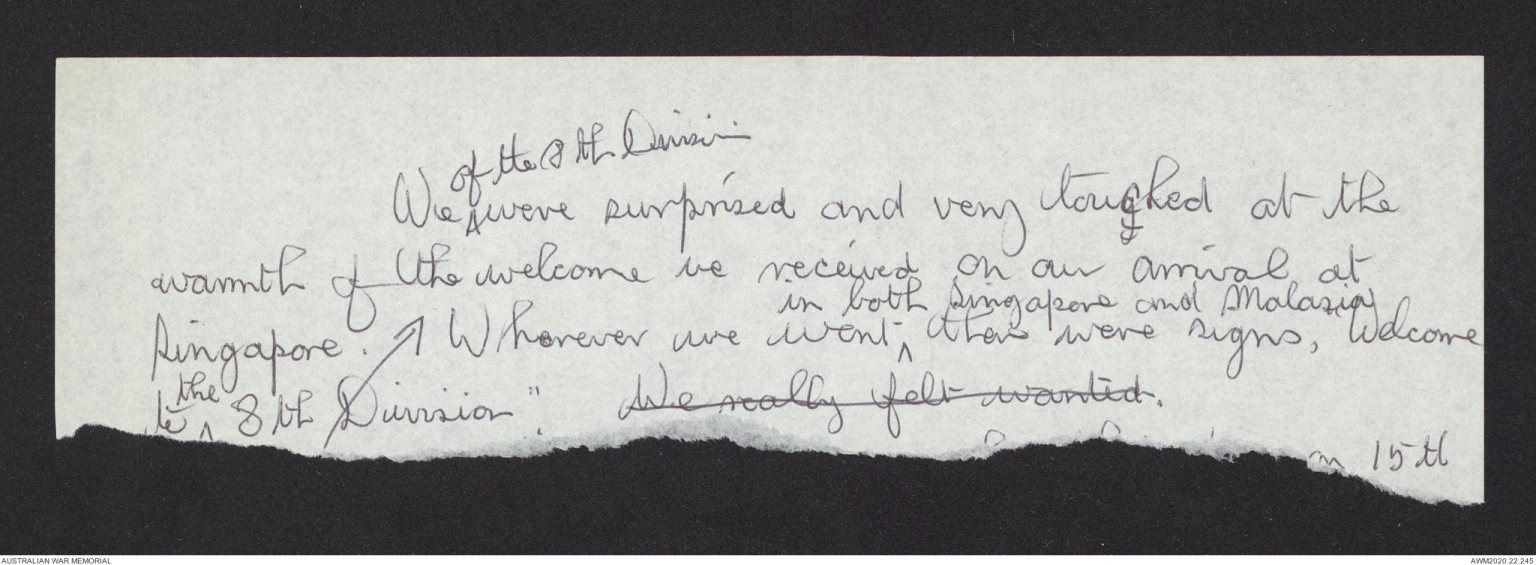 of the 8th Division
We were surprised and very touched at the
warmth of the welcome we received on our arrival at
in both Singapore and Malasia
Singapore. Wherever we went, there were signs, Welcome
the
to 8th Division". We really felt wanted.
on 15th
AUSTRALIAN WAR MEMORIAL
AWM2020.22.245